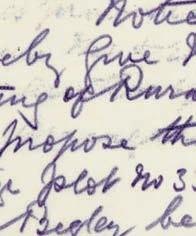 Notic
eby give N
ing of Rura
propose th
plot No 3
Begley be